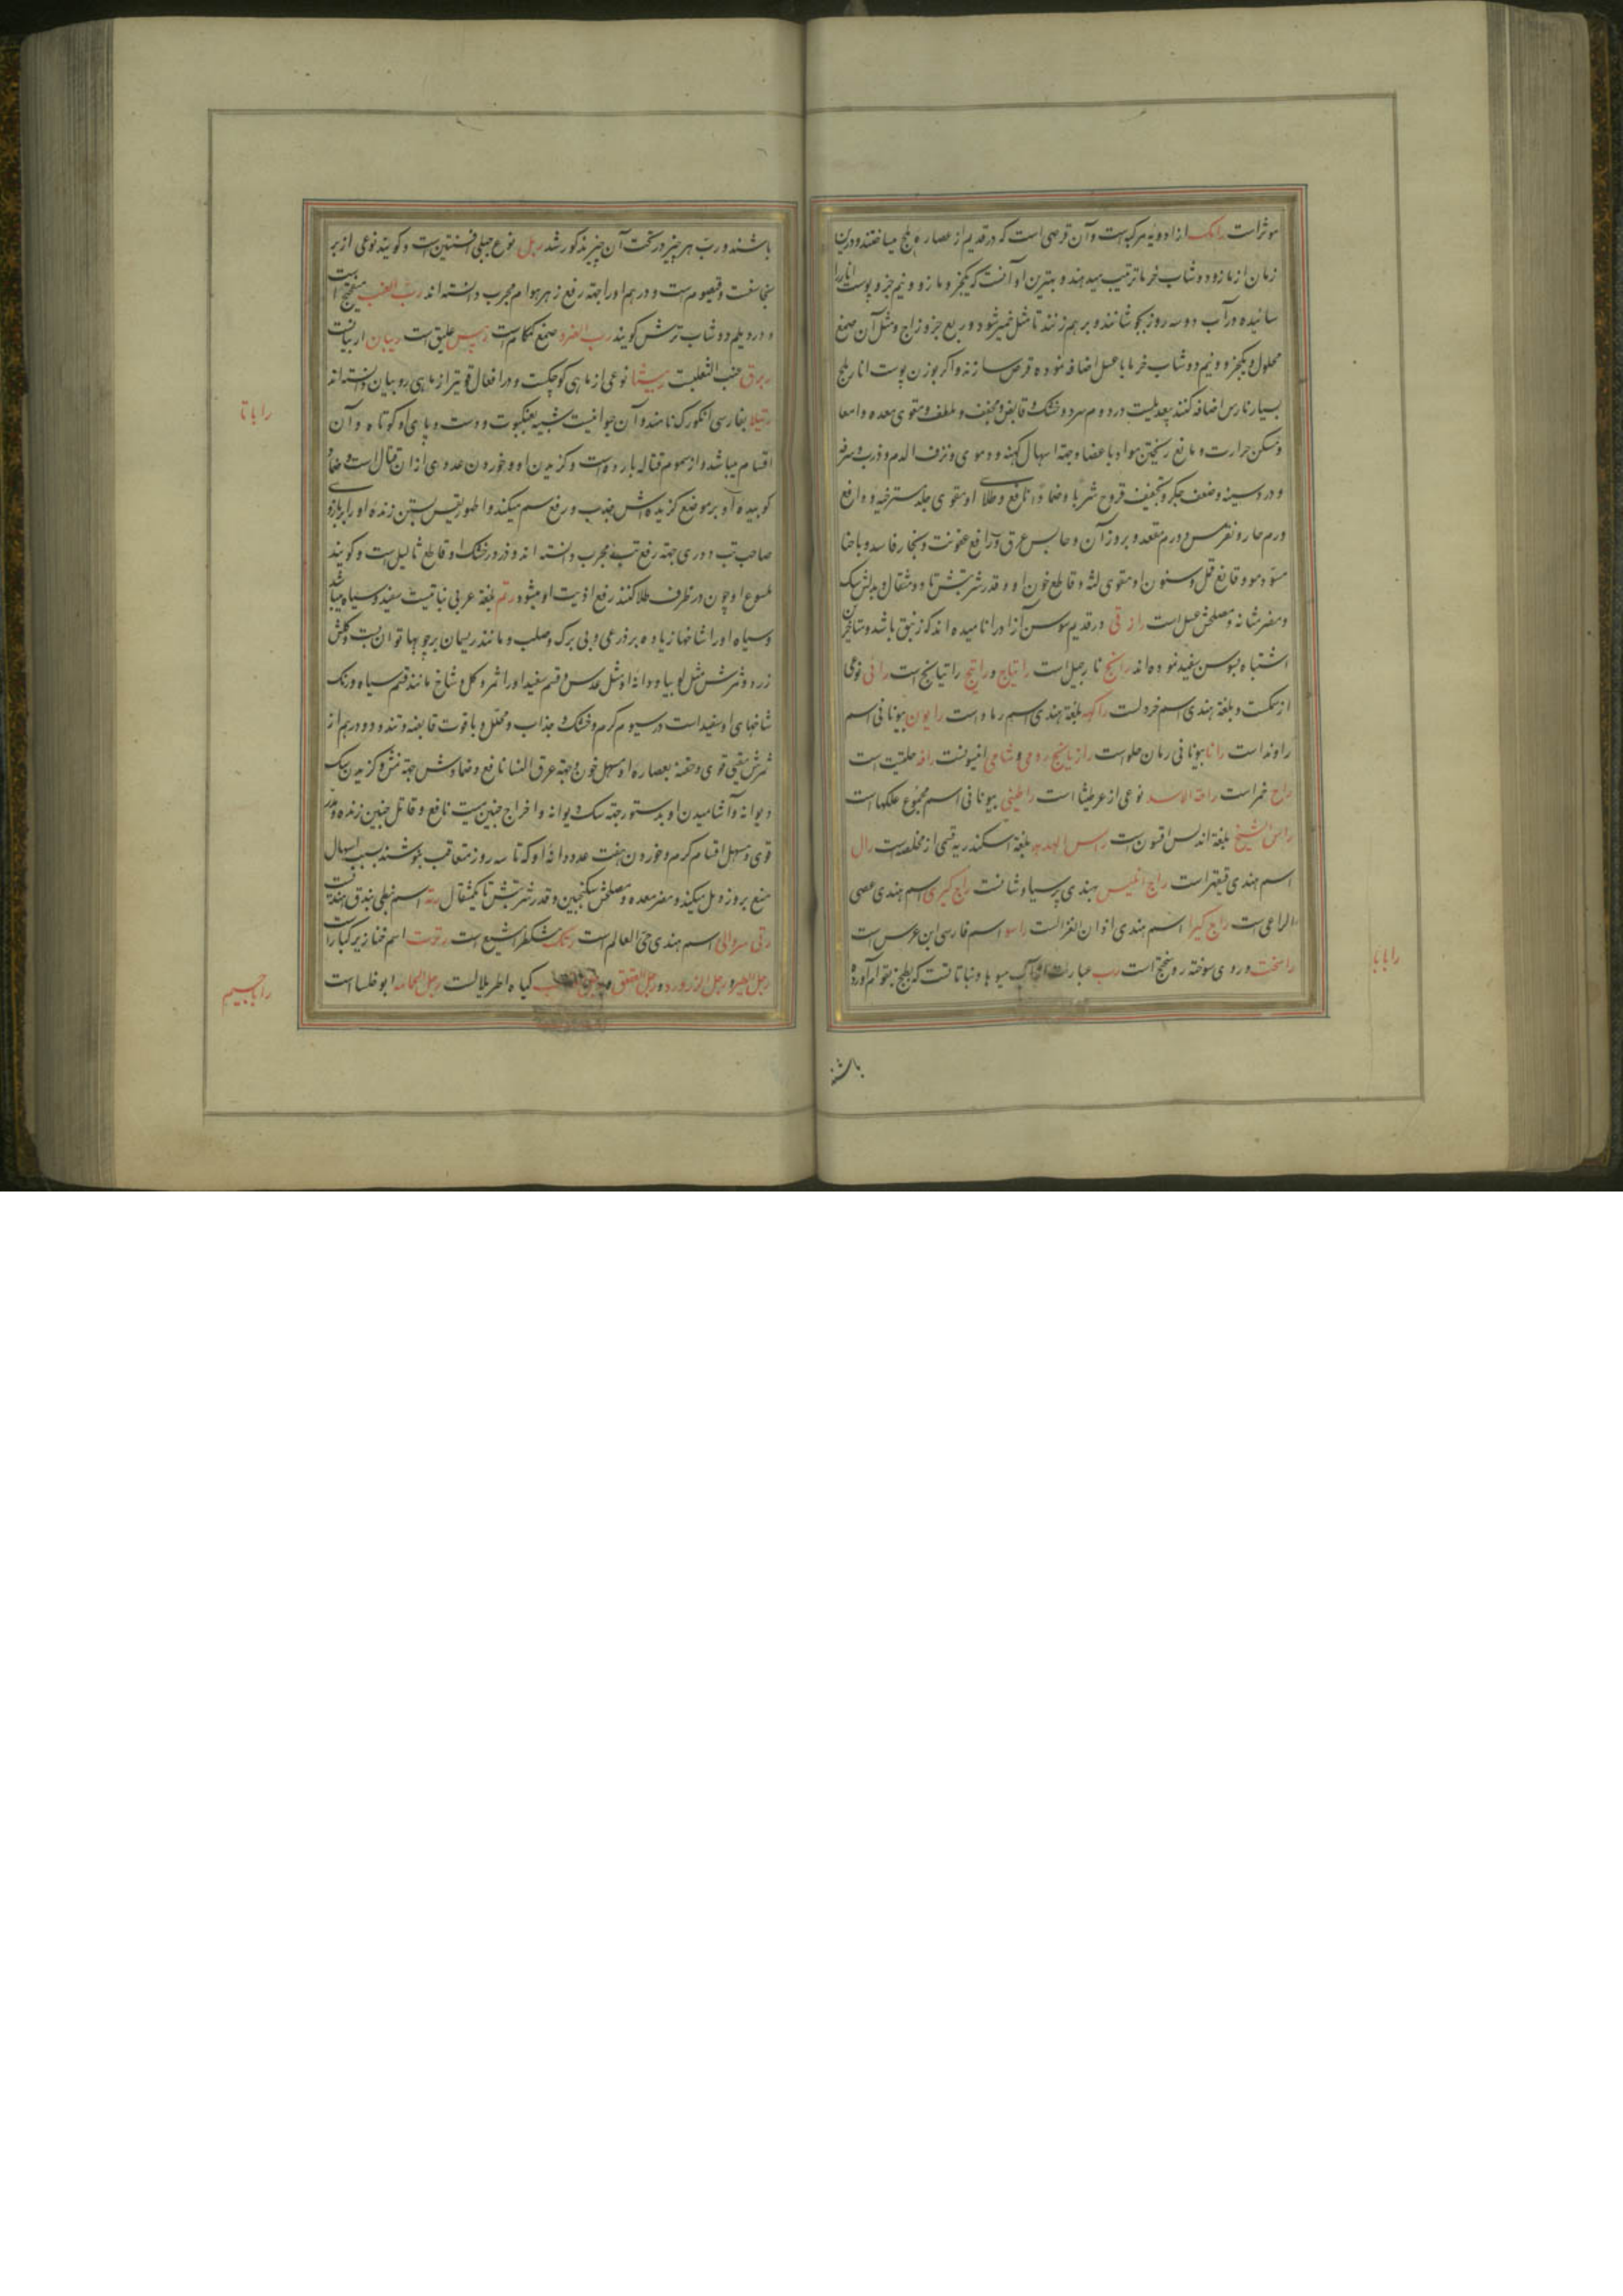 موثر است رامک از ادویه مرکبه است و آن قرصی است که در قدیم از عصاره بلح میساختند و درین
زمان از مازو و دوشاب خرما ترتیب میدهند و بهترین او آنست که یکجزو مازو و نیم جزو پوست انار را
سائیده در آب دو سه روز بجوشانند و بر هم زنند تا مثل خمیر شود و ربع جزو زاج و مثل آن صمغ
محلول و یکجزو و نیم دوشاب خرما یا عسل اضافه نموده قرص سازند و اگر بوزن پوست انار بلح
بسیار نارس اضافه کنند بعید نیست در دوم سرد و خشک و قابض و مجفف و ملطف و مقوی معده و امعا
و مسکن حرارت و مانع ریختن مواد باعضا و جهة اسهال کهنه و دموی و نزف الدم و ذرب و سرفه
و درد سینه و ضعف جکر و تجفیف قروح شربا و ضمادا نافع و طلای او مقوی جلد مسترخیه و رافع
ورم حار و نقرس و ورم مقعد و بروز آن و حابس عرق و رافع عفونت و بخار فاسد و با حنا
مسود مو و قانع قمل و سنون او مقوی لثه و قاطع خون او و قدر شربتش تا دو مثقال و بدلش سک
و مضر مثانه و مصلحش عسل است رازقی در قدیم سوسن آزاد را نامیده اند که زنبق باشد و متاخرین
اشتباه بسوسن سفید نموده اند رانج نارجیل است راتیاج و راتنج راتیانج است رائی نوعی
از سمکست و بلغة هندی اسم خردلست راکهه بلغة هندی اسم رماد است رایون بیونانی اسم
راوند است رانا بیونانی رمان حلو است رازیانج رومی و شامی انیسونست رافه حلتیت است
راح خمر است راحة الاسد نوعی از عرطنیثا است راطینی بیونانی اسم مجموع علکها است
راس الشیخ بلغة اندلس اقسون است راس الهدهد بلغة اسکندریه قسمی از مخلصه است رال
اسم هندی قیقهر است راج هندی پرسیاوشانست راج کیری اسم هندی عصی
الراعی است راج کیرا اسم هندی اذان الغزالست راسو اسم فارسی ابن عرس است
راسخت و روی سوخته روسختج است رب عبارت از آب میوها و نباتاتست که بطبخ بقوام آورده
راباتا
باشند
باشند و رب هر چیز در تحت آن چیز مذکور شد ربل نوع جبلی افسنتین است و کویند نوعی از بر
نجاسفت و قیصوم است و دو درهم او را جهة رفع زهر هوام مجرب دانسته اند رب العنب میفختج است
و در دیلم دوشاب ترش کویند رب الضرو صمغ کمکام است علیق است ربیان اربیانست
ربرق عنب الثعلبست ربیثا نوعی از ماهی کوچکست و در افعال قویتر از ماهی روبیان دانسته اند
رتیلا بفارسی انکورک نامند و آن حیوانیست شبیه بعنکبوت و دست و پای او کوتاه و آن
اقسام میباشد و از سموم قتاله بارده است و کزیدن او و خوردن عددی از آن قتال است و ضماد
کوبیده او بر موضع کزیده اش جذب و رفع سم میکند و اطهورقیس بستن زنده او را بر بازوی
صاحب تب دوری جهة رفع تب مجرب دانسته اند و ذرور خشک او قاطع ثالیل است و کویند
ملسوع او چون در ظرف طلا کنند رفع اذیت او میشود رتم بلغة عربی نباتیست سفید و سیاه میباشد
و سیاه او را شاخها زیاده بر ذرعی و بی برک و صلب و مانند ریسمان بر چوبها توان بست و کلش
زرد و ثمرش مثل لوبیا و دانه او مثل عدس و قسم سفید او را ثمر و کل و شاخ مانند قسم سیاه و رنک
شاخهای او سفید است در سیوم کرم و خشک و جذاب و محلل و با قوت قابضه و تند و دو درهم از
ثمرش مقیئ قوی و حقنه بعصاره او مسهل خون و جهة عرق النسا نافع و ضمادش جهة نمش و کزیدن سک
دیوانه و آشامیدن او بدستور جهة سک دیوانه و اخراج جنین میت نافع و قاتل جنین زنده و مدر
قوی و مسهل اقسام کرم و خوردن هفت عدد دانه او که تا سه روز متعاقب بنوشند بسبب اسهال
منع بروز دمل میکند و مضر معده و مصلحش سکنجبین و قدر شربتش تا یکمثقال رته اسم نبطی بندق هندیست
رتی سروالی اسم هندی حی العالم است رتک مشکطرامشیع است رتوت اسم خنازیر کبار است
رجل الطیر و رجل الزرزور و رجل العقعق و کیاه اطریلالست رجل الحمامه ابو خلسا است
راباتا
راباجیم